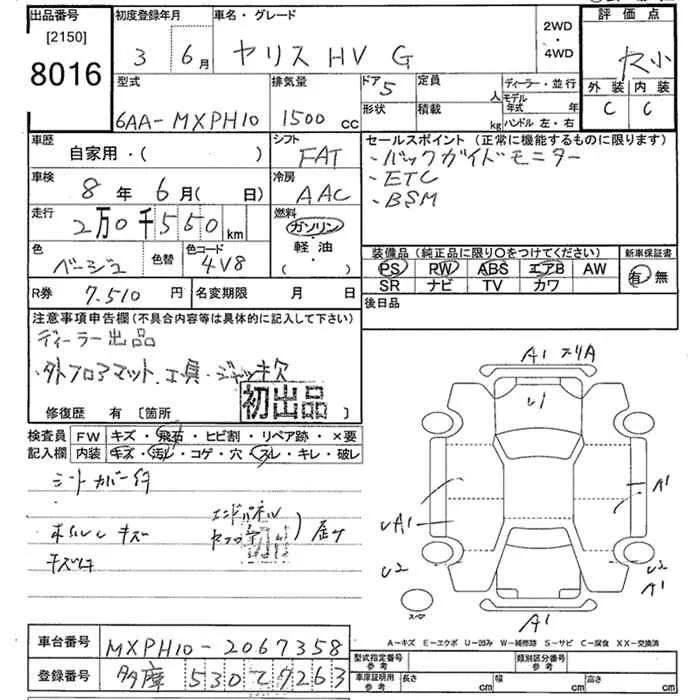 出品番号 初度登録年月 車名・グレード 2WD・4WD 評価点
[2150]
8016 3年 6月 ヤリス HV G
外装 内装
C C
型式 排気量 ドア 定員 ディーラー・並行
6AA-MXPH10 1500cc 5 人 モデル年式 年
形状 積載 kg ハンドル 左・右
車歴 シフト セールスポイント(正常に機能するものに限ります)
自家用・( ) FAT ・バックガイドモニター
車検 冷房 ・ETC
8年 6月( 日) AAC ・BSM
走行 燃料
2万0千550km ガソリン
軽・油
・( )
色 色替 色コード 装備品(純正品に限り○をつけてください) 新車保証書
ベージュ 4V8 PS RW ABS エアB AW 有・無
SR ナビ TV カワ
R券 7.510円 名変期限 月 日 後日品
注意事項申告欄(不具合内容等は具体的に記入して下さい)
ディーラー出品
・外フロアマット.工具・ジャッキ欠
初出品
修復歴 有 [箇所 ]
検査員 FW キズ・飛石・ヒビ割・リペア跡・×要
記入欄 内装 キズ・汚レ・コゲ・穴・スレ・キレ・破レ
シートカバー付
エンドパネル
キズ
A1
U1
A1
UA1
U2 U2
A1
A1
スペア
A-キズ E-エクボ U-凹み W-補修跡 S-サビ C-腐食 XX-交換済
車台番号 MXPH10-2067358
型式指定番号 参考 類別区分番号 参考
登録番号 多摩 530 て 7263
車庫証明用 参考 長さ cm 幅 cm 高さ cm